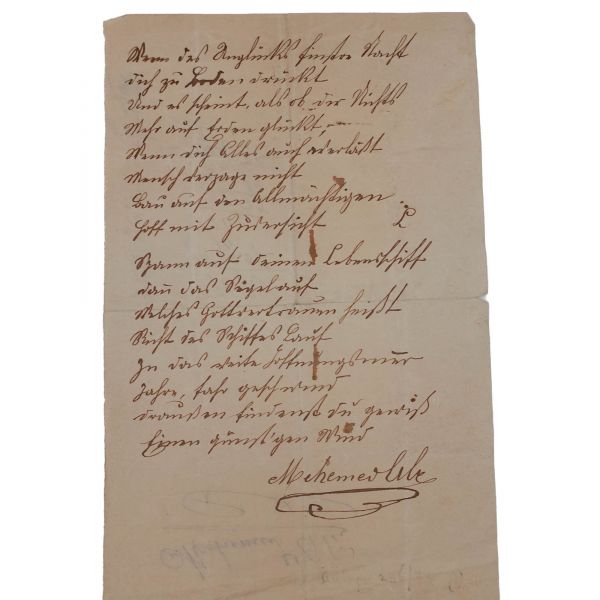 Wenn des Unglücks finstre Nacht
dich zu Boden drückt
Und es scheint, als ob dir Nichts
Mehr auf Erden glückt, –
Wenn dich Alles auch verläßt
Mensch verzage nicht
Bau auf den Allmächtigen
Hoff mit Zuversicht
Spann auf deinem Lebensschiff
dann das Segel auf
Welches Gottvertrauen heißt
Richt des Schiffes Lauf
In das weite Hoffnungsmeer
Fahre, fahr geschwind
draußen findenst du gewiß
Einen günst'gen Wind
Mehemed Ali